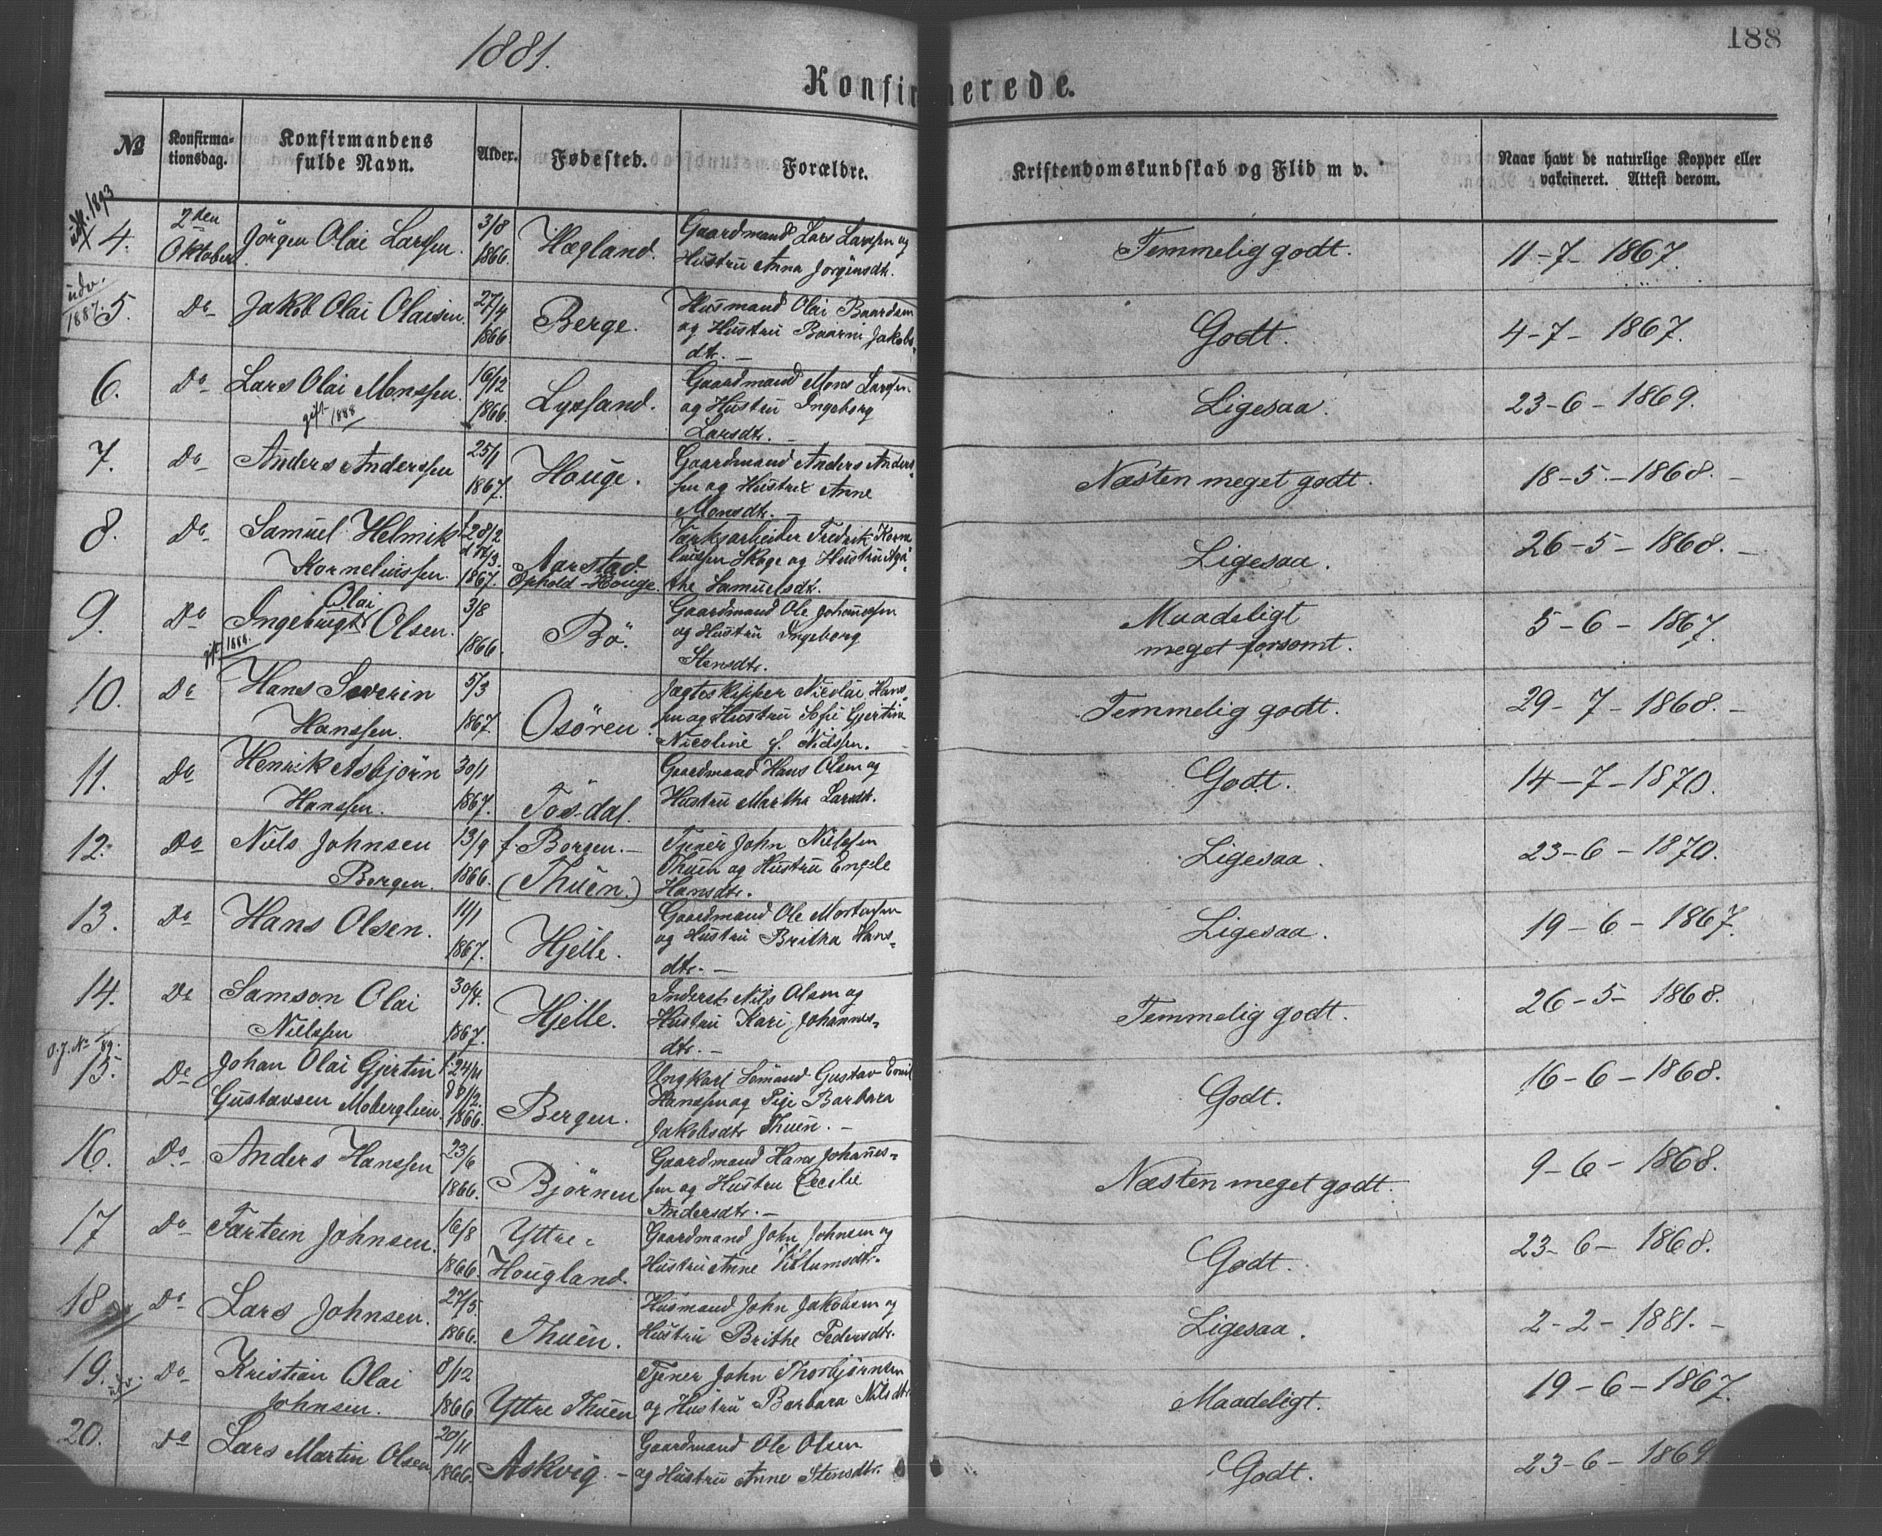 1881.
188
Konfirmerede.
№
Konfirma-
tionsdag.
Konfirmandens
fulde Navn.
Alder.
Fødested.
Forældre.
Kristendomskundskab og Flid m v.
Naar havt de naturlige Kopper eller
vakcineret. Attest derom.
udfl. 1893
4. 2den Oktober Jörgen Olai Larssen. 3/8 1866. Hægland. Gaardmand Lars Larssen og
Hustru Anna Jorgensdt. Temmelig godt. 11-7-1867.
udv. 1887.
5. Do Jakob Olai Olaisen. 27/4 1866 Berge. Husmand Olai Baardsen
og Hustru Baarni Jakobs-
dtr. – Godt. 4-7-1867.
6. Do Lars Olai Monssen. 16/12 1866. Lyssand. Gaardmand Mons Larssen
og Hustru Ingeborg
Larsdtr. – Ligesaa. 23-6-1869.
gift 1888
7. Do Anders Anderssen 25/1 1867. Houge. Gaardmand Anders Anders-
sen og Hustru Anne
Monsdtr. – Næsten meget godt. 18-5-1868. –
8. Do Samuel Helmik
Korneliussen. f 28/2 1867. Aarstad.
Ophold Houge. Værksarbeider Fredrik Korne
liussen Skoge og Hustru Aga-
the Samuelsdt. Ligesaa. 26-5-1868. –
9. Do Olai
Ingebrigt Olsen. 3/8 1866. Bö. Gaardmand Ole Johannessen
og Hustru Ingeborg
Stensdtr. Maadeligt
meget forsømt. 5-6-1867.
gift 1888.
10. Do Hans Severin
Hanssen. 5/3 1867. Osören. Jægteskipper Nicolai Hans-
sen og Hustru Sofie Gjertine
Nicoline f. Nielssen. – Temmelig godt. 29-7-1868. –
11. Do Henrik Asbjörn
Hanssen. 30/1 1867. Tösdal. Gaardmand Hans Olsen og
Hustru Martha Larsdt. Godt. 14-7-1870.
12. Do Nils Johnsen
Bergen. 13/9 1866. f. Bergen. –
(Thuen.) Tjener John Nielssen
Thuen og Hustru Engele
Hansdtr. Ligesaa. 23-6-1870.
13. Do Hans Olsen. 11/1 1867. Hjelle. Gaardmand Ole Mortensen
og Hustru Britha Hans-
dtr. – Ligesaa. 19-6-1867.
14. Do Samson Olai
Nielssen 30/4 1867. Hjelle. Inderst Nils Olsen og
Hustru Kari Johannes-
dtr. – Temmelig godt. 26-5-1868.
15. Do Johan Olai Gjertin
Gustavsen Moberglien. f. 24/11 d 8/12 1866. Bergen. Ungkarl Sømand Gustav Emil
Hanssen og Pige Barbara
Jakobsdtr Thuen. – Godt. 16-6-1868.
16. Do Anders Hanssen 23/6 1866. Björnen Gaardmand Hans Johannes-
sen og Hustru Cecilie
Andersdtr. – Næsten meget godt. 9-6-1868.
17 Do Tartein Johnsen. 16/8 1866. Yttre-
Hougland. Gaardmand John Johnsen og
Hustru Anne Villumsdtr. Godt. 23-6-1868.
18 Do Lars Johnsen. 27/5. 1866. Thuen. Husmand John Jakobsen og
Hustru Brithe Pedersdtr. Ligesaa. 2-2-1881. –
19. udv. Do Kristian Olai
Johnsen. 8/12 1866 Yttre Thuen Tjener John Thorbjørnsen
og Hustru Barbara Nilsdtr Maadeligt. 19-6-1867.
20. Do Lars Martin Olsen 20/11 1866. Askvig. – Gaardmand Ole Olsen
og Hustru Anne Stensdtr. Godt. 23-6-1869